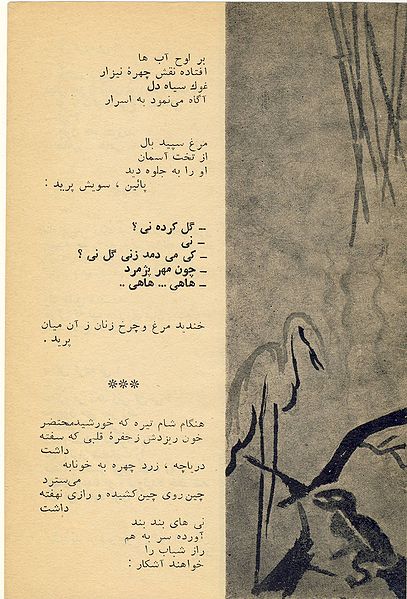 بر لوح آب ها
افتاده نقش چهرهٔ نیزار
غوك سیاه دل
آگاه می‌نمود به اسرار
مرغ سپید بال
از تخت آسمان
او را به جلوه دید
پائین ، سویش پرید :
ـ گل کرده نی ؟
ـ نی
ـ کی می دمد زنی گل نی ؟
ـ چون مهر پژمرد
ـ هاهی ... هاهی ..
خندید مرغ وچرخ زنان ز آن میان
پرید .
***
هنگام شام تیره که خورشیدمحتضر
خون ریزدش زحفرهٔ قلبی که سفته
داشت
دریاچه ، زرد چهره به خونابه
می‌سترد
چین‌روی چین‌کشیده و رازی نهفته
داشت
نی های بند بند
آورده سر به هم
راز شباب را
خواهند آشکار :